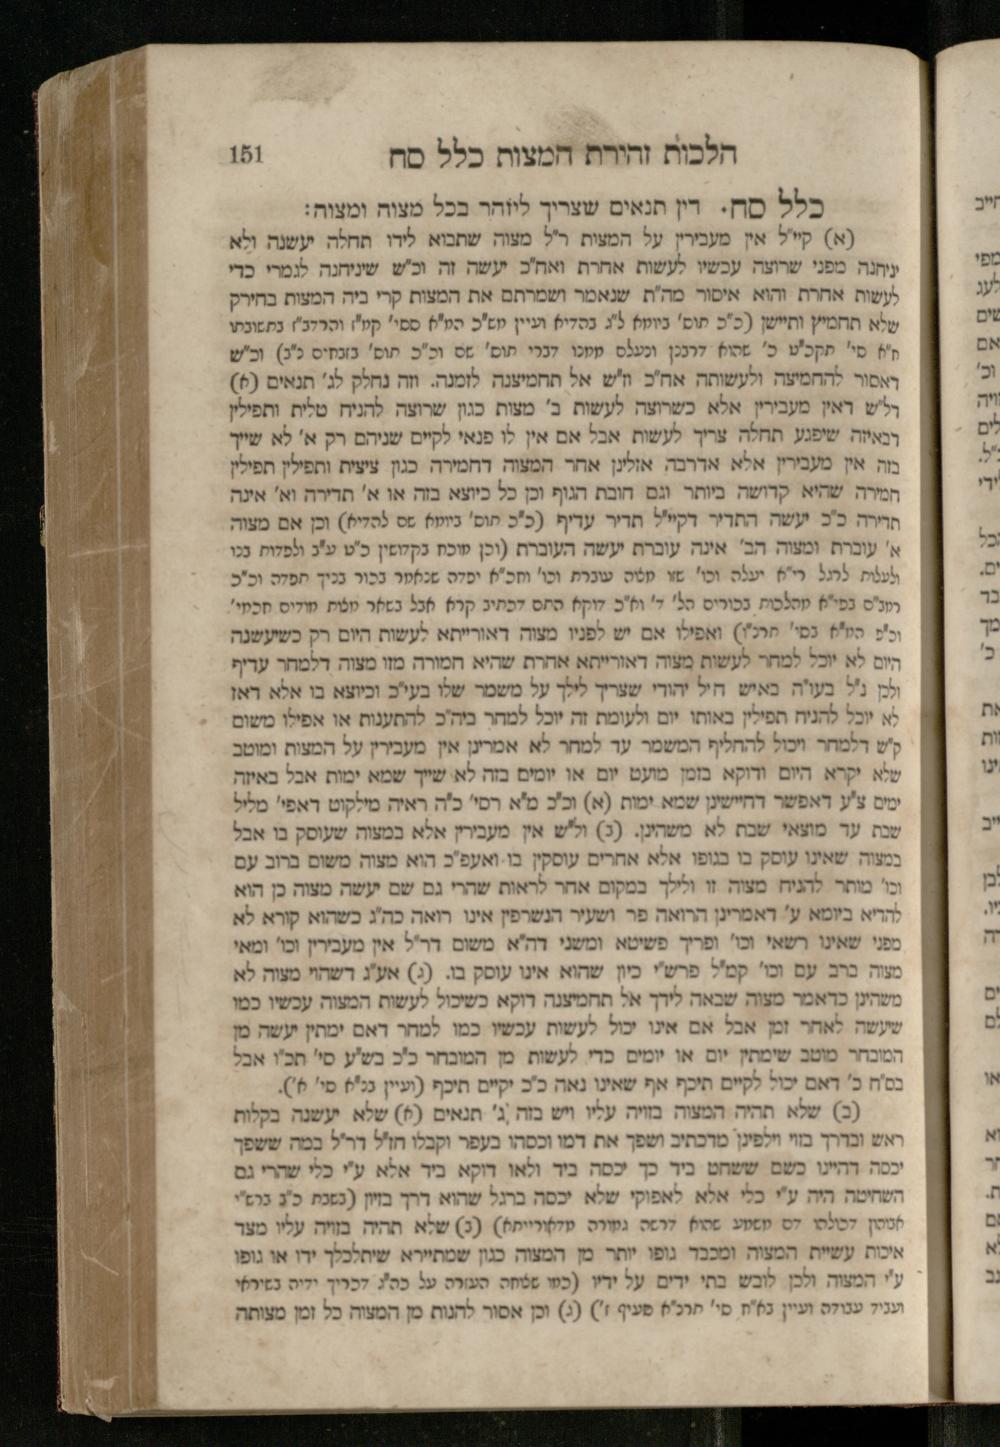 הלכות זהירת המצות כלל סח 151
כלל סח. דין תנאים שצריך ליזהר בכל מצוה ומצוה:
(א) קיי"ל אין מעבירין על המצות ר"ל מצוה שתבוא לידו תחלה יעשנה ולא
יניחנה מפני שרוצה עכשיו לעשות אחרת ואח"כ יעשה זה וכ"ש שיניחנה לגמרי כדי
לעשות אחרת והוא איסור מה"ת שנאמר ושמרתם את המצות קרי ביה המצות בחירק
שלא תחמיץ ותיישן (כ"כ תוס' ביומא ל"ג בהדיא ועיין מש"כ המ"א ססי' קמ"ז והרדב"ז בתשובתו
ח"א סי' תקכ"ט כ' שהוא דרבנן ונעלם ממנו דברי תוס' שם וכ"כ תוס' בזבחים נ"ב) וכ"ש
דאסור להחמיצה ולעשותה אח"כ וז"ש אל תחמיצנה לזמנה. וזה נחלק לג' תנאים (א)
דל"ש דאין מעבירין אלא כשרוצה לעשות ב' מצות כגון שרוצה להניח טלית ותפילין
דבאיזה שיפגע תחלה צריך לעשות אבל אם אין לו פנאי לקיים שניהם רק א' לא שייך
בזה אין מעבירין אלא אדרבה אזלינן אחר המצוה דחמירה כגון ציצית ותפילין תפילין
חמירה שהיא קדושה ביותר וגם חובת הגוף וכן כל כיוצא בזה או א' תדירה וא' אינה
תדירה כ"כ יעשה התדיר דקיי"ל תדיר עדיף (כ"כ תוס' ביומא שם להדיא) וכן אם מצוה
א' עוברת ומצוה הב' אינה עוברת יעשה העוברת (וכן מוכח בקדושין כ"ט ע"ב ולפדות בנו
ולעלות לרגל רי"א יעלה וכו' שזו מצוה עוברת וכו' וחכ"א יפדה שנאמר בכור בניך תפדה וכ"כ
רמב"ם בפי"א מהלכות בכורים הל' ד' וא"כ דוקא התם דכתיב קרא אבל בשאר מצות מודים חכמי'
וכ"פ המ"א בסי' תרנ"ו) ואפילו אם יש לפניו מצוה דאורייתא לעשות היום רק כשיעשנה
היום לא יוכל למחר לעשות מצוה דאורייתא אחרת שהיא חמורה מזו מצוה דלמחר עדיף
ולכן נ"ל בעו"ה באיש חיל יהודי שצריך לילך על משמר שלו בעי"כ וכיוצא בו אלא דאז
לא יוכל להניח תפילין באותו יום ולעומת זה יוכל למחר ביה"כ להתענות או אפילו משום
ק"ש דלמחר ויכול להחליף המשמר עד למחר לא אמרינן אין מעבירין על המצות ומוטב
שלא יקרא היום ודוקא בזמן מועט יום או יומים בזה לא שייך שמא ימות אבל באיזה
ימים צ"ע דאפשר דחיישינן שמא ימות (א) וכ"כ מ"א רסי' כ"ה ראיה מילקוט דאפי' מליל
שבת עד מוצאי שבת לא משהינן. (ב) ול"ש אין מעבירין אלא במצוה שעוסק בו אבל
במצוה שאינו עוסק בו בגופו אלא אחרים עוסקין בו ואעפ"כ הוא מצוה משום ברוב עם
וכו' מותר להניח מצוה זו ולילך במקום אחר לראות שהרי גם שם יעשה מצוה כן הוא
להדיא ביומא ע' דאמרינן הרואה פר ושעיר הנשרפין אינו רואה כה"ג כשהוא קורא לא
מפני שאינו רשאי וכו' ופריך פשיטא ומשני דה"א משום דר"ל אין מעבירין וכו' ומאי
מצוה ברב עם וכו' קמ"ל פרש"י כיון שהוא אינו עוסק בו. (ג) אע"ג דשהוי מצוה לא
משהינן כדאמר מצוה שבאה לידך אל תחמיצנה דוקא כשיכול לעשות המצוה עכשיו כמו
שיעשה לאחר זמן אבל אם אינו יכול לעשות עכשיו כמו למחר דאם ימתין יעשה מן
המובחר מוטב שימתין יום או יומים כדי לעשות מן המובחר כ"כ בש"ע סי' תכ"ו אבל
בס"ח כ' דאם יכול לקיים תיכף אף שאינו נאה כ"כ יקיים תיכף (ועיין בנ"א סי' א').
(ב) שלא תהיה המצוה בזויה עליו ויש בזה ג' תנאים (א) שלא יעשנה בקלות
ראש ובדרך בזוי וילפינן מדכתיב ושפך את דמו וכסהו בעפר וקבלו חז"ל דר"ל במה ששפך
יכסה דהיינו כשם ששחט ביד כך יכסה ביד ולאו דוקא ביד אלא ע"י כלי שהרי גם
השחיטה היה ע"י כלי אלא לאפוקי שלא יכסה ברגל שהוא דרך בזיון (בשבת כ"ב ברש"י
אבוהון דכולהו דם משמע שהוא דרשה גמורה מדאורייתא) (ב) שלא תהיה בזויה עליו מצד
איכות עשיית המצוה ומכבד גופו יותר מן המצוה כגון שמתיירא שיתלכלך ידו או גופו
ע"י המצוה ולכן לובש בתי ידים על ידיו (כמו שצוחה העזרה על כה"ג דכריך ידיה בשיראי
ועביד עבודה ועיין בא"ח סי' תרנ"א סעיף ז') (ג) וכן אסור להנות מן המצוה כל זמן מצותה